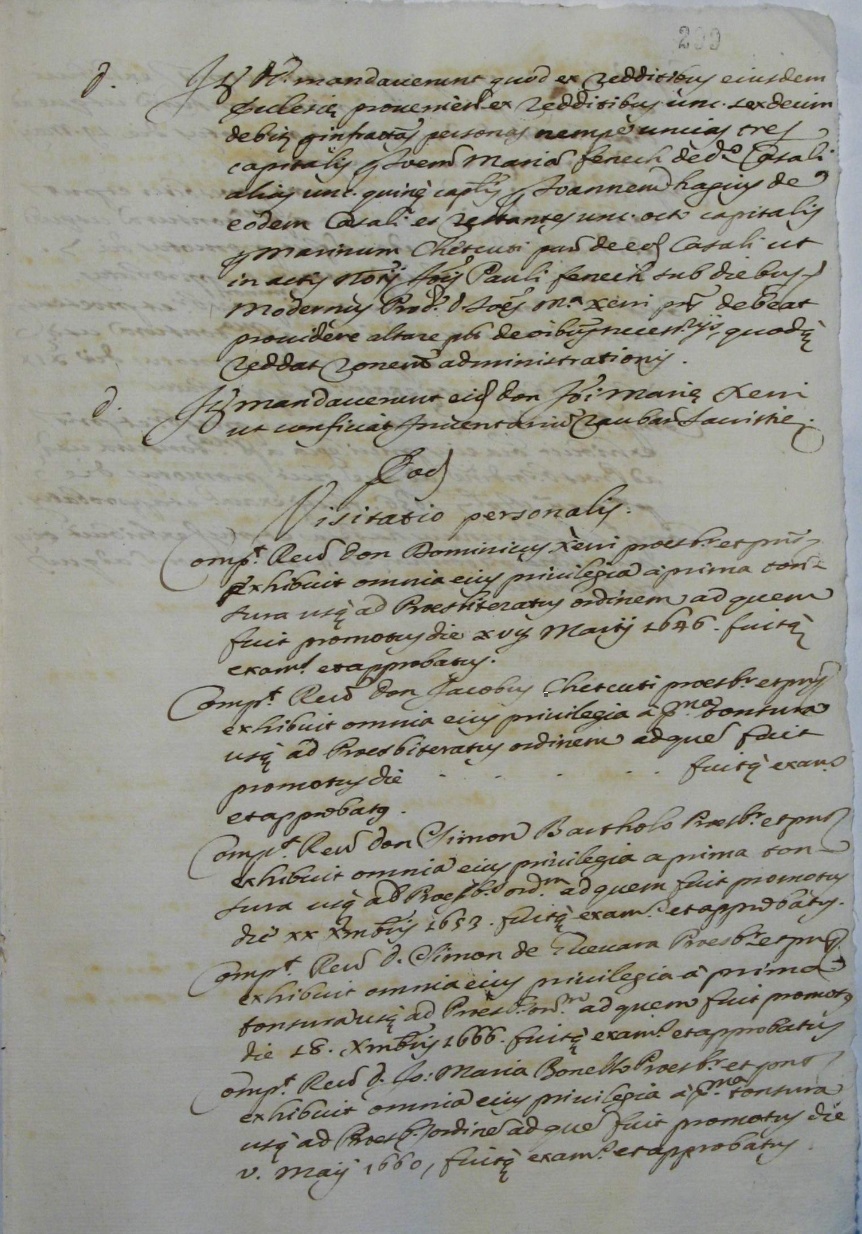 299
d. It. D. mandaverunt quod ex redditibus eiusdem
Ecclesię provenient. ex redditibus unc. sexdecim
debitę infractas personas nempe uncias tres
capitalis Ioem Maria fenech de do. Casali
alias unc. quinq capłis Ioannem hagius de
eodem Casali et restantes unc. octo capitalis
Marinum Chetcuti de eod Casali ut
in actis Notrij Pauli fenech sub diebus
Modernus Proc. d. Ma. xerri debeat
providere altare quodq
reddat administrationis.
d. It. mandaverunt eid don Joi: Marię Xerri
ut conficiat Inventariu Sacristię.
Eod
Visitatio personalis.
Compt. Reud don Dominicus Xerri præsbr. et
exhibuit omnia eius privilegia a prima ton-
sura usq ad Præsbiteratus ordinem ad quem
fuit promotus die xvij Martij 1646. fuitq
exam. et approbatus.
Compt. Reud don Jacobus Chetcuti præsbr. et
exhibuit omnia eius privilegia a pma tonsura
usq ad Præsbiteratus ordinem ad que fuit
promotus die . . . . . fuitq exam.
et approbatq.
Compt. Reud don Simon Bartholo Præsbr. et
exhibuit omnia eius privilegia a prima ton-
sura usq ad Præsb. ordm ad quem fuit promotus
die xx Xmbris 1653. fuitq exam. et approbatus.
Compt. Reud d. Simon de Guevara Præsbr. et
exhibuit omnia eius privilegia a prima
tonsura usq ad Præsb. ad quem fuit promotq
die 18. Xmbris 1666. fuitq exam. et approbatus
Compt. Reud d. Jo: Maria Bonello Præsbr. et
exhibuit omnia eius privilegia a pma tonsura
usq ad Præsb. ordine ad que fuit promotus die
v. Maij 1660, fuitq exam. et approbatus